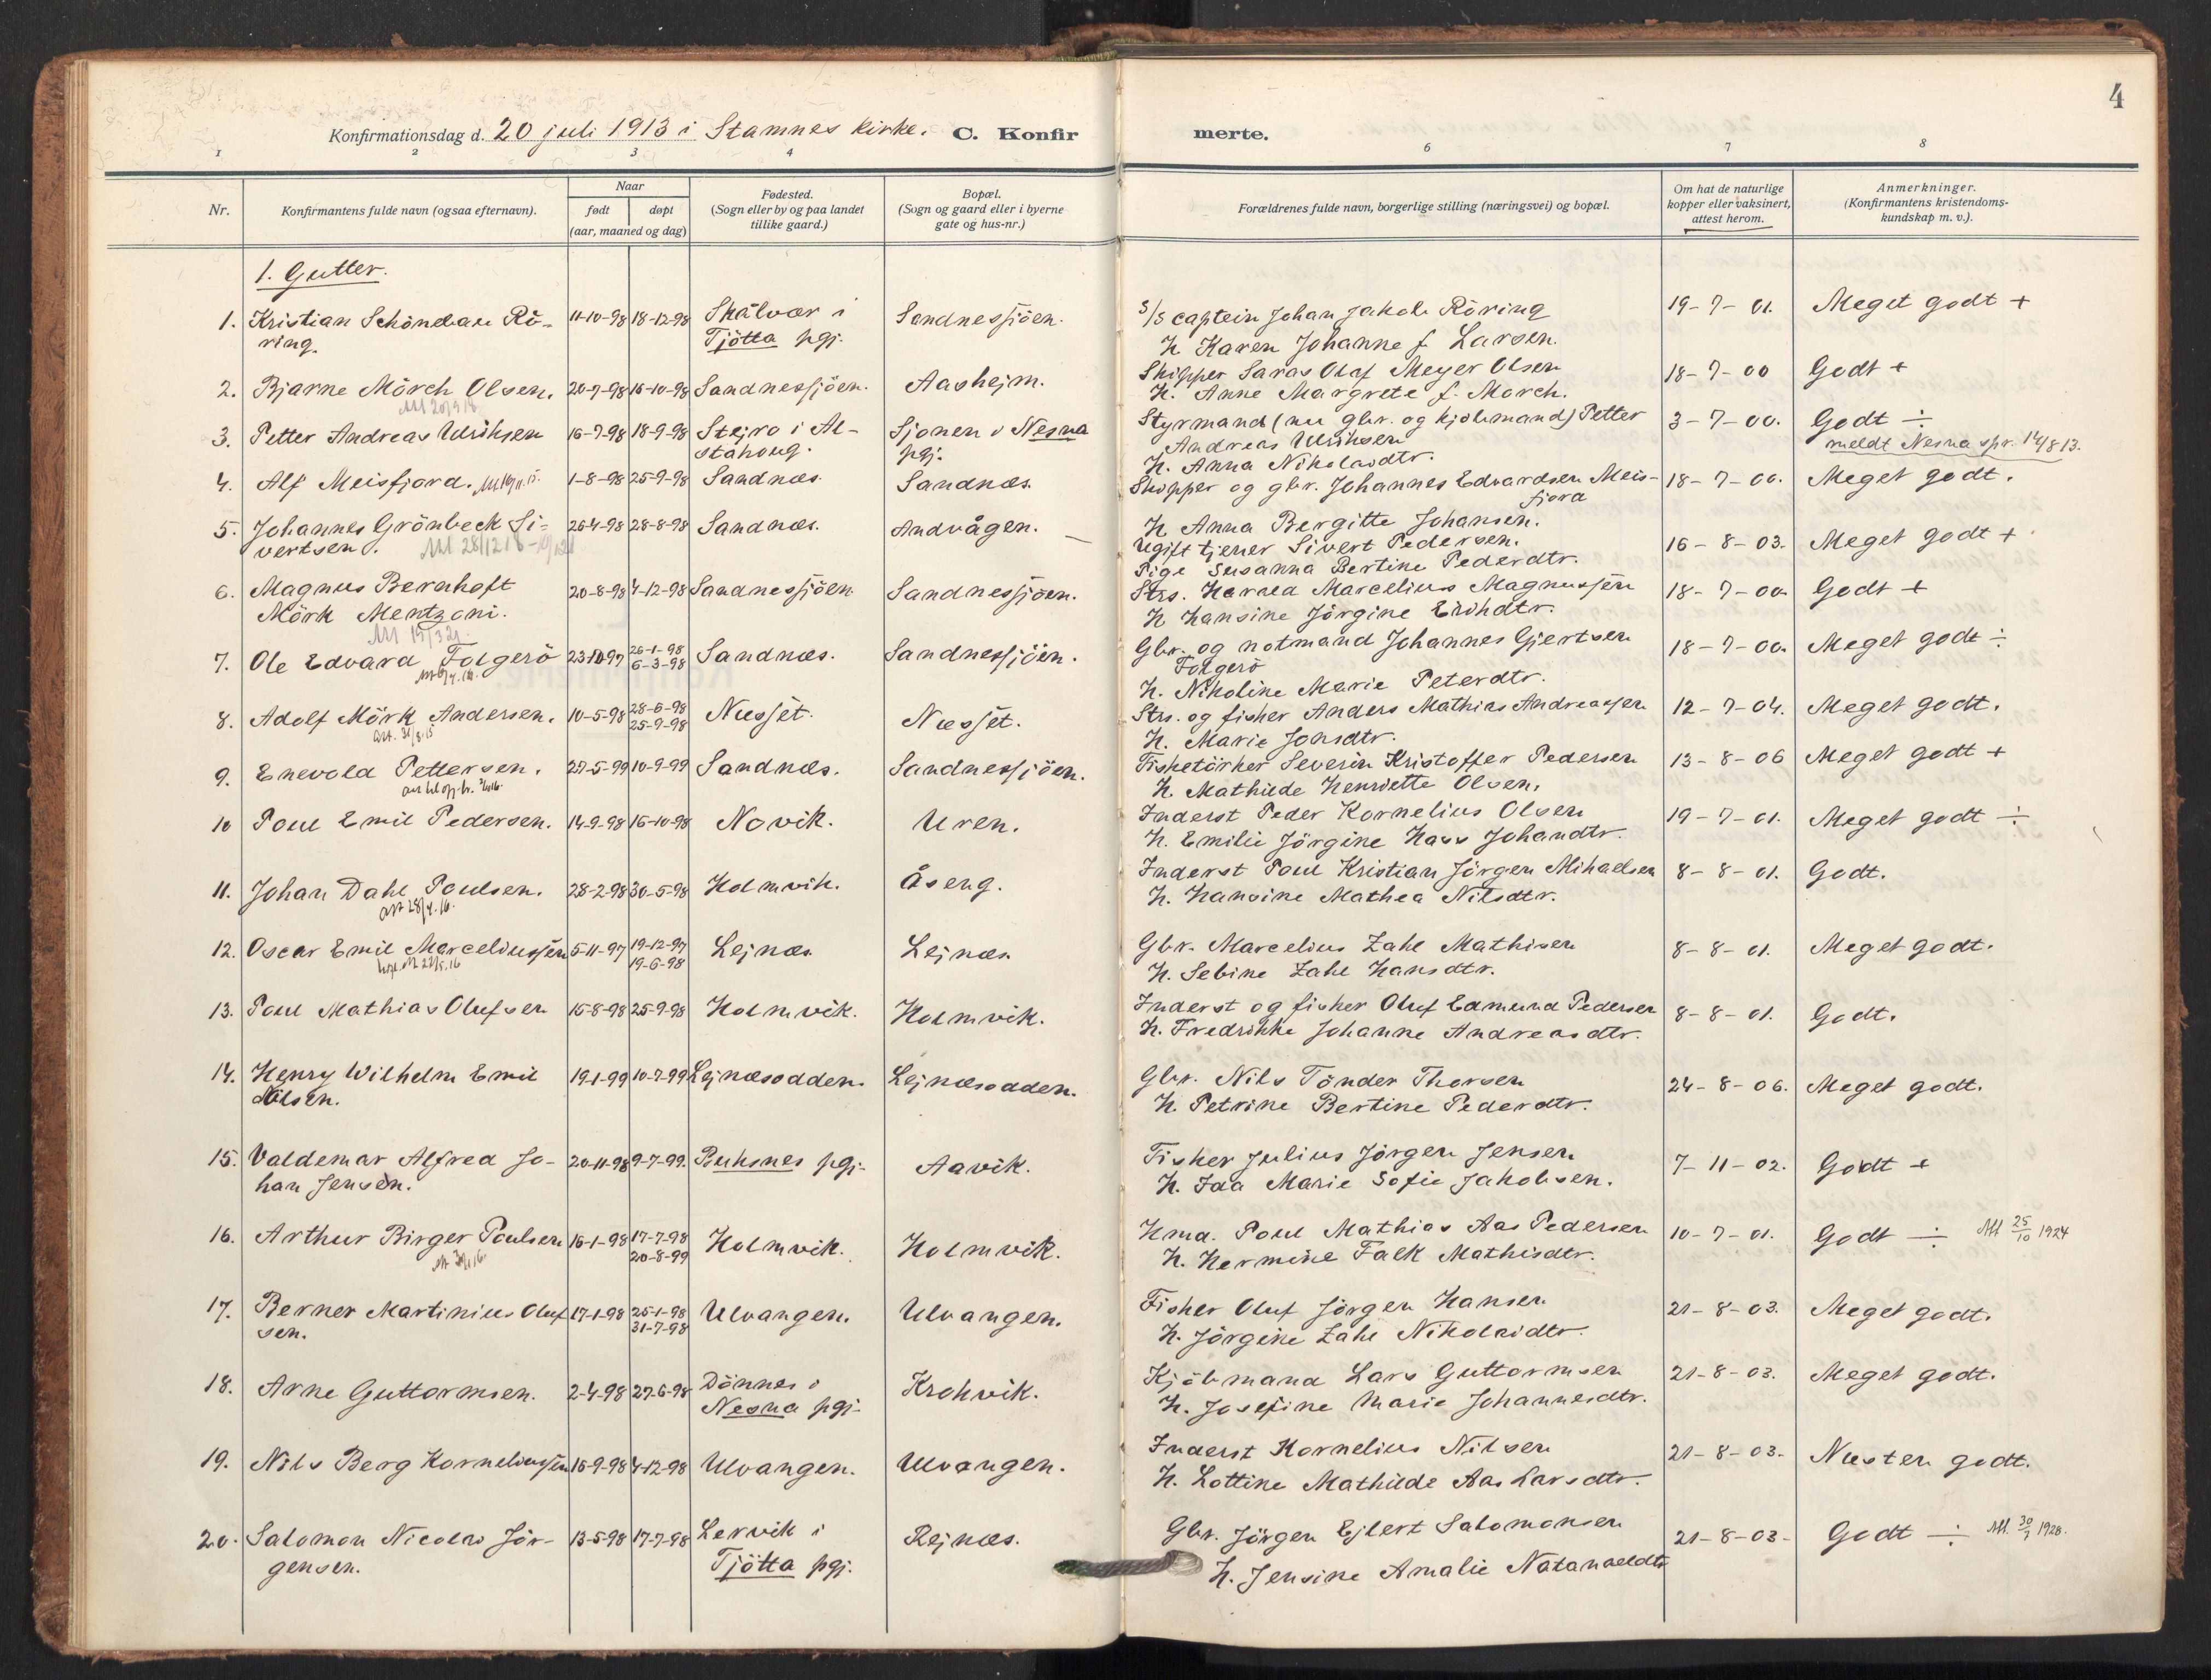 4
Konfirmationsdag d. 20 juli 1913 i Stamnes kirke. C. Konfir merte.
1 2 3 4 6 7 8
Nr.
Konfirmantens fulde navn (ogsaa efternavn).
Naar
født døpt
(aar, maaned og dag)
Fødested.
(Sogn eller by og paa landet
tillike gaard.)
Bopæl.
(Sogn og gaard eller i byerne
gate og hus-nr.)
Forældrenes fulde navn, borgerlige stilling (næringsvei) og bopæl.
Om hat de naturlige
kopper eller vaksinert,
attest herom.
Anmerkninger.
(Konfirmantens kristendoms-
kundskap m. v.).
1. Gutter.
1. Kristian Schöndahl Rö- 11-10-98 18-12-98 Skålvær i Sandnessjöen. S/S captein Johan Jakob Röring 19-7-01. Meget godt +
ring. Tjötta pgj. H. Karen Johanne f. Larsen.
2. Bjarne Mörch Olsen. 20-7-98 16-10-98 Sandnessjöen. Aasheim. Skipper Saras Olaf Meyer Olsen 18-7-00 Godt +
H. Anne Margrete f. Mørch.
3. Petter Andreas Ulriksen 16-7-98 18-9-98 Stejro i Al- Sjonen i Nesna Styrmand (nu gbr. og kjøbmand) Petter 3-7-00. Godt ÷
stahoug. pgj. Andreas Ulriksen meldt Nesna spr. 14/8 13.
H. Anna Nikolaidtr.
4. Alf Meisfjord. 1-8-98 25-9-98 Sandnæs. Sandnæs. Skipper og gbr. Johannes Edvardsen Meis- 18-7-00. Meget godt.
fjord
H. Anna Bergitte Johansen.
5. Johannes Grönbeck Si- 26-4-98 28-8-98 Sandnæs. Andvågen. Ugift tjener Sivert Pedersen. 16-8-03. Meget godt +
vertsen. Pige Susanna Bertine Pederdtr.
6. Magnus Bernhoft 20-8-98 4-12-98 Sandnessjöen. Sandnessjöen. Strs. Harald Marcelius Magnussen 18-7-00 Godt +
Mörk Mentzoni. H. Hansine Jörgine Erikdtr.
7. Ole Edvard Folgerö 23-10-97 26-1-98 Sandnæs. Sandnessjöen. Gbr. og notmand Johannes Gjertsen 18-7-00. Meget godt ÷
6-3-98 Folgerö
H. Nikoline Marie Peterdtr.
8. Adolf Mörk Andersen. 10-5-98 28-6-98 Nusjet. Nusjet. Strs. og fisker Anders Mathias Andreassen 12-7-04. Meget godt.
25-9-98 H. Marie Jonsdtr.
9. Enevold Pettersen. 29-5-99 10-9-99 Sandnæs. Sandnessjöen. Fisketörker Severin Kristoffer Pedersen 13-8-06 Meget godt +
H. Mathilde Henriette Olsen.
10 Poul Emil Pedersen. 14-9-98 16-10-98 Novik. Uren. Inderst Peder Kornelius Olsen 19-7-01. Meget godt ÷
H. Emilie Jörgine Hass Johandtr.
11. Johan Dahl Poulsen. 28-2-98 30-5-98 Holmvik. Åseng. Inderst Poul Kristian Jörgen Mihaelsen 8-8-01. Godt.
H. Hansine Mathea Nilsdtr.
12. Oscar Emil Marceliussen 5-11-97 19-12-97 Lejnæs. Lejnæs. Gbr. Marcelius Zahl Mathisen 8-8-01. Meget godt.
19-6-98 H. Sebine Zahl Hansdtr.
13. Poul Mathias Olufsen 15-8-98 25-9-98 Holmvik. Holmvik. Inderst og fisker Oluf Edmund Pedersen 8-8-01. Godt.
H. Fredrikke Johanne Andreasdtr.
14. Henry Wilhelm Emil 19-1-99 10-7-99 Lejnæsodden. Lejnæsodden. Gbr. Nils Tönder Thorsen 24-8-06. Meget godt.
Nilsen. H. Petrine Bertine Pederdtr.
15. Valdemar Alfred Jo- 20-11-98 9-7-99. Buksnes pgj. Aavik. Fisker Julius Jörgen Jensen 7-11-02. Godt +
han Jensen. H. Ida Marie Sofie Jakobsen.
16. Arthur Birger Poulsen 16-1-98 17-7-98 Holmvik. Holmvik. Hmd. Poul Mathias Aas Pedersen 10-7-01. Godt ÷ Att 25/10 1924
20-8-99 H. Hermine Falk Mathisdtr.
17. Berner Martinius Oluf 17-1-98 25-1-98 Ulvangen. Ulvangen. Fisker Oluf Jörgen Hansen 21-8-03. Meget godt.
sen. 31-7-98 H. Jörgine Zahl Nikolaidtr.
18. Arne Guttormsen. 2-4-98 27-6-98 Dönnes i Krokvik. Kjöbmand Lars Guttormsen 21-8-03. Meget godt.
Nesna pgj. H. Josefine Marie Johannesdtr.
19. Nils Berg Korneliussen 16-9-98 4-12-98 Ulvangen. Ulvangen. Inderst Kornelius Nilsen 21-8-03. Næsten godt.
H. Lottine Mathilde Aas Larsdtr.
20. Salomon Nicolai Jör- 13-5-98 17-7-98 Lervik i Rejnæs. Gbr. Jörgen Ejlert Salomonsen 21-8-03- Godt ÷ Att. 30/7 1928.
gensen. Tjötta pgj. H. Jensine Amalie Natanaeldtr